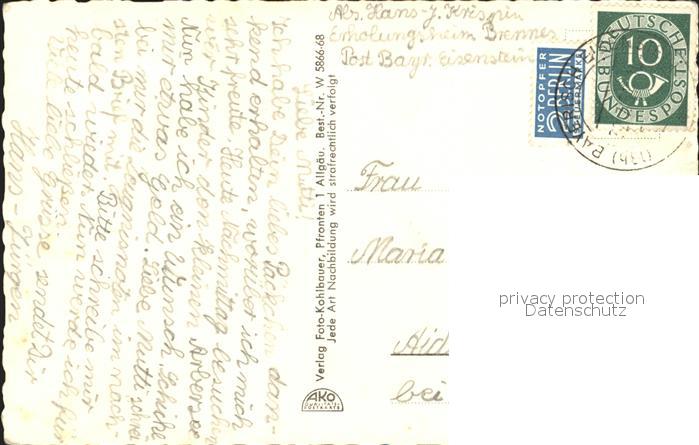 Liebe Mutti!
Ich habe Dein liebes Päckchen dan-
kend erhalten, worüber ich mich
sehr freute. Heute Nachmittag besuchen
wir Kinder den kleinen Arbersee
Nun habe ich ein Wunsch, Schicke
mir etwas Geld. Liebe Mutti schrei
be mir die Zeugnisnoten im näch-
sten Brief mit. Bitte schreibe mir
bald wieder. Nun werde ich für
heute schließen.
Viele liebe Grüsse sendet Dir
Hans-Jürgen
Verlag Foto-Kohlbauer, Pfronten 1 Allgäu. Best.-Nr. W 5866-68
Jede Art Nachbildung wird strafrechtlich verfolgt
Abs. Hans J. Krispin
Erholungsheim Brennes
Post Bayr. Eisenstein
NOTOPFER
2 BERLIN
STEUERMARKE
DEUTSCHE
BUNDESPOST
10
(13b)
Frau
Maria
Aid
bei
AKO
QUALITÄTS-
POSTKARTE
privacy protection
Datenschutz